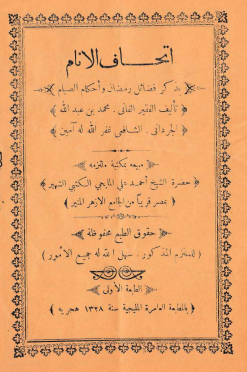 اتحاف الانام
بذكر فضائل رمضان وأحكام الصيام
﴿ تأليف الفقير الفاني محمد بن عبد الله ﴾
﴿ الجرداني الشافعي غفر الله له آمين ﴾
﴿ مبيعه بمكتبة ملتزمه ﴾
﴿ حضرة الشيخ أحمد علي المليجي الكتبي الشهير ﴾
﴿ بمصر قريباً من الجامع الازهر المنير ﴾
﴿ حقوق الطبع محفوظة ﴾
( للملتزم المذكور سهل الله له جميع الأمور )
﴿ الطبعة الأولى ﴾
﴿ بالمطبعة العامرة المليجية سنة ١٣٢٨ هجريه ﴾